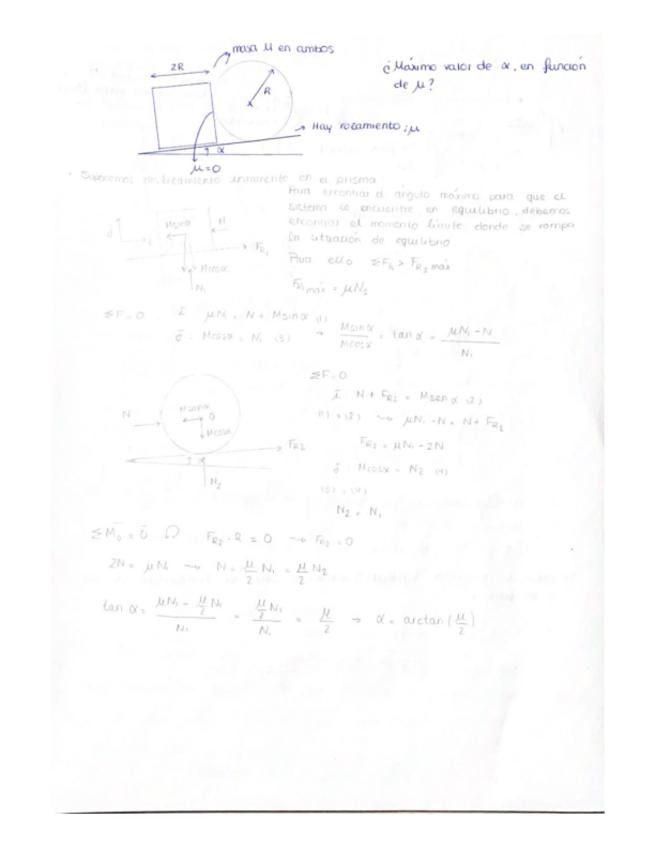 masa M en ambos
2R
R
¿Máximo valor de α, en función
de μ?
Hay rozamiento; μ
α
μ=0
· Suponemos deslizamiento inminente en el prisma
Para encontrar el ángulo máximo para que el
sistema se encuentre en equilibrio, debemos
encontrar el momento límite donde se rompa
la situación de equilibrio
Para ello ΣF > F_R1 máx
F_R1 máx = μN₁
Msinα
N
F_R1
Mcosα
N₁
ΣF=0
μN₁ = N + Msinα (1)
Mcosα = N₁ (3) → Msinα/Mcosα = tanα = (μN₁ - N)/N₁
ΣF=0
N + F_R2 = Msenα (2)
(1) = (2) → μN₁ - N = N + F_R2
F_R2 = μN₁ - 2N
Mcosα = N₂ (4)
(3) = (4)
N₂ = N₁
N
Msinα
O
Mcosα
F_R2
α
N₂
ΣM₀ = 0 F_R2 · R = 0 → F_R2 = 0
2N = μN₁ → N = μ/2 N₁ = μ/2 N₂
tan α = (μN₁ - μ/2 N₁)/N₁ = (μ/2 N₁)/N₁ = μ/2 → α = arctan(μ/2)